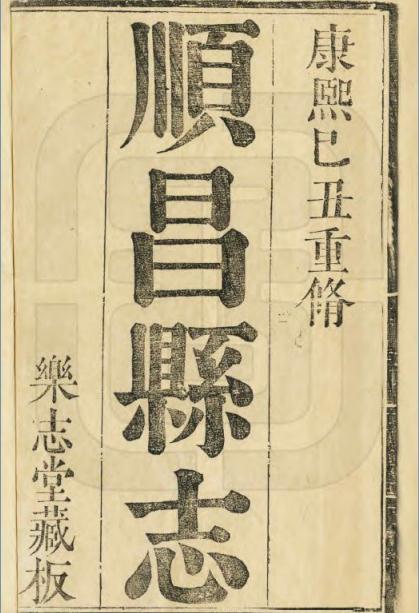 康熙巳丑重脩
順昌縣志
樂志堂藏板